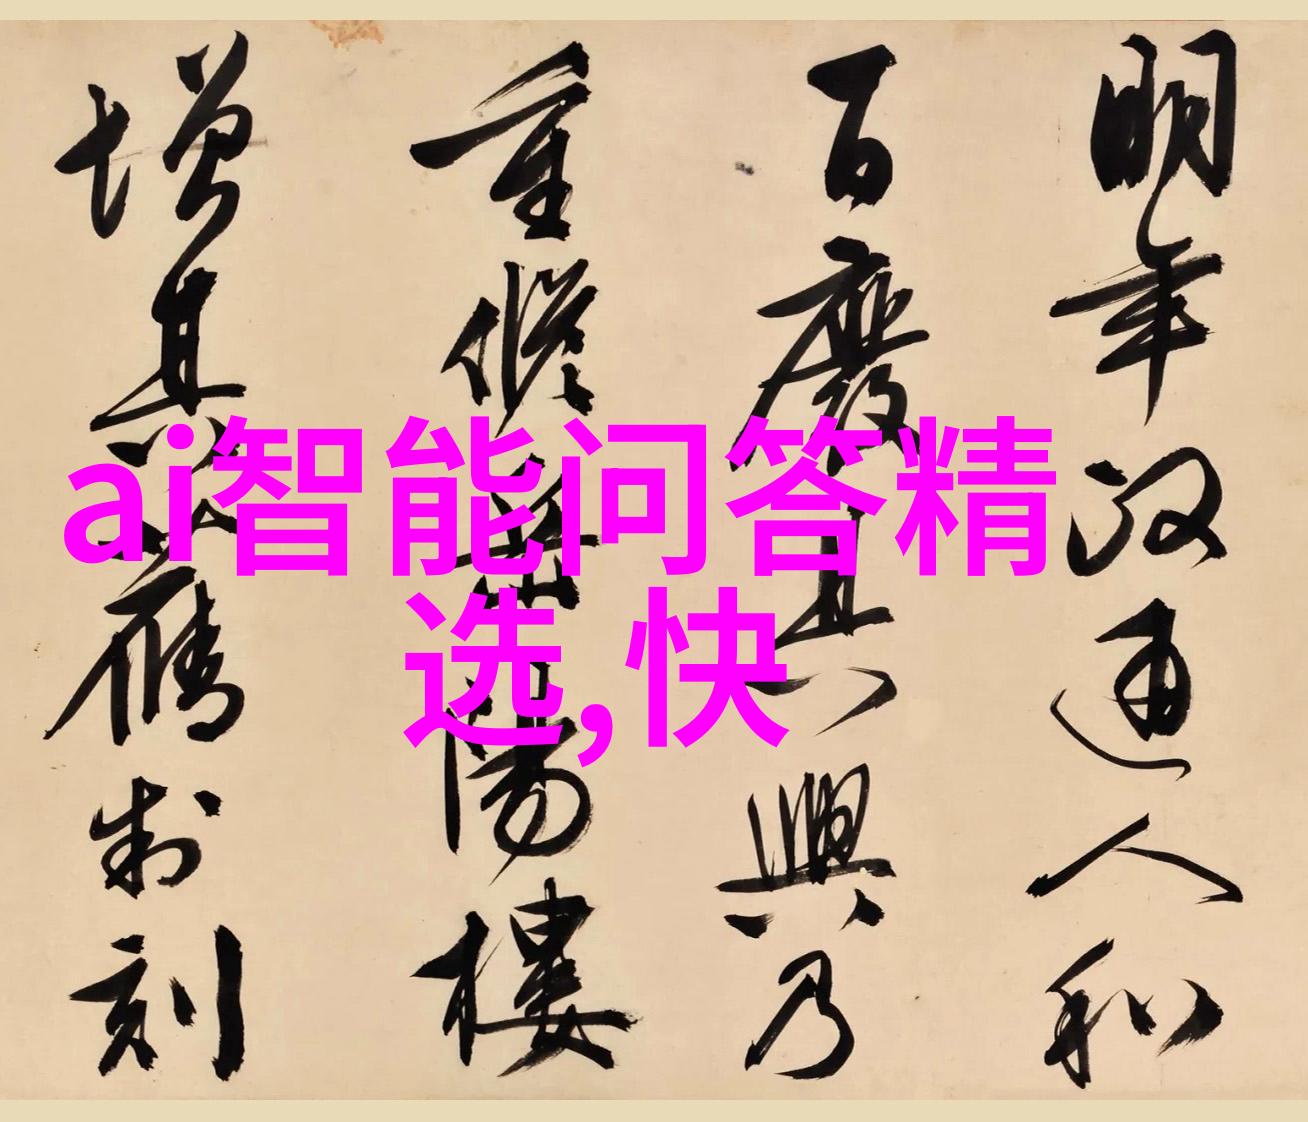 明年政通人和
百廢具興乃
重修岳陽樓
增其舊制刻
ai智能问答精
选,快